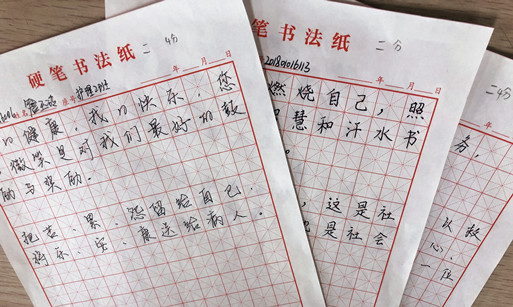 硬笔书法纸 二 4分
年 月 日
座号 护理2班
的健康,我的快乐,您
微笑是对我们最好的鼓
励与奖励。
把苦、累、怨留给自己,
将乐、安、康送给病人。
硬笔书法纸 二分
年 月 日
2018010113
燃烧自己,照
慧和汗水书
,这是社
是社会
二 4分
年 月 日
务,
以救
心,
一位